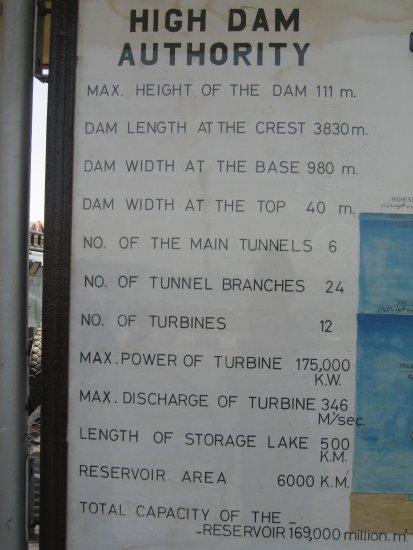 HIGH DAM
AUTHORITY
MAX. HEIGHT OF THE DAM 111 m.
DAM LENGTH AT THE CREST 3830 m.
DAM WIDTH AT THE BASE 980 m.
DAM WIDTH AT THE TOP 40 m.
NO. OF THE MAIN TUNNELS 6
NO. OF TUNNEL BRANCHES 24
NO. OF TURBINES 12
MAX. POWER OF TURBINE 175,000
K.W.
MAX. DISCHARGE OF TURBINE 346
M³/sec.
LENGTH OF STORAGE LAKE 500
K.M.
RESERVOIR AREA 6000 K.M.
TOTAL CAPACITY OF THE _
_RESERVOIR 169,000 million. m.
HIGHES